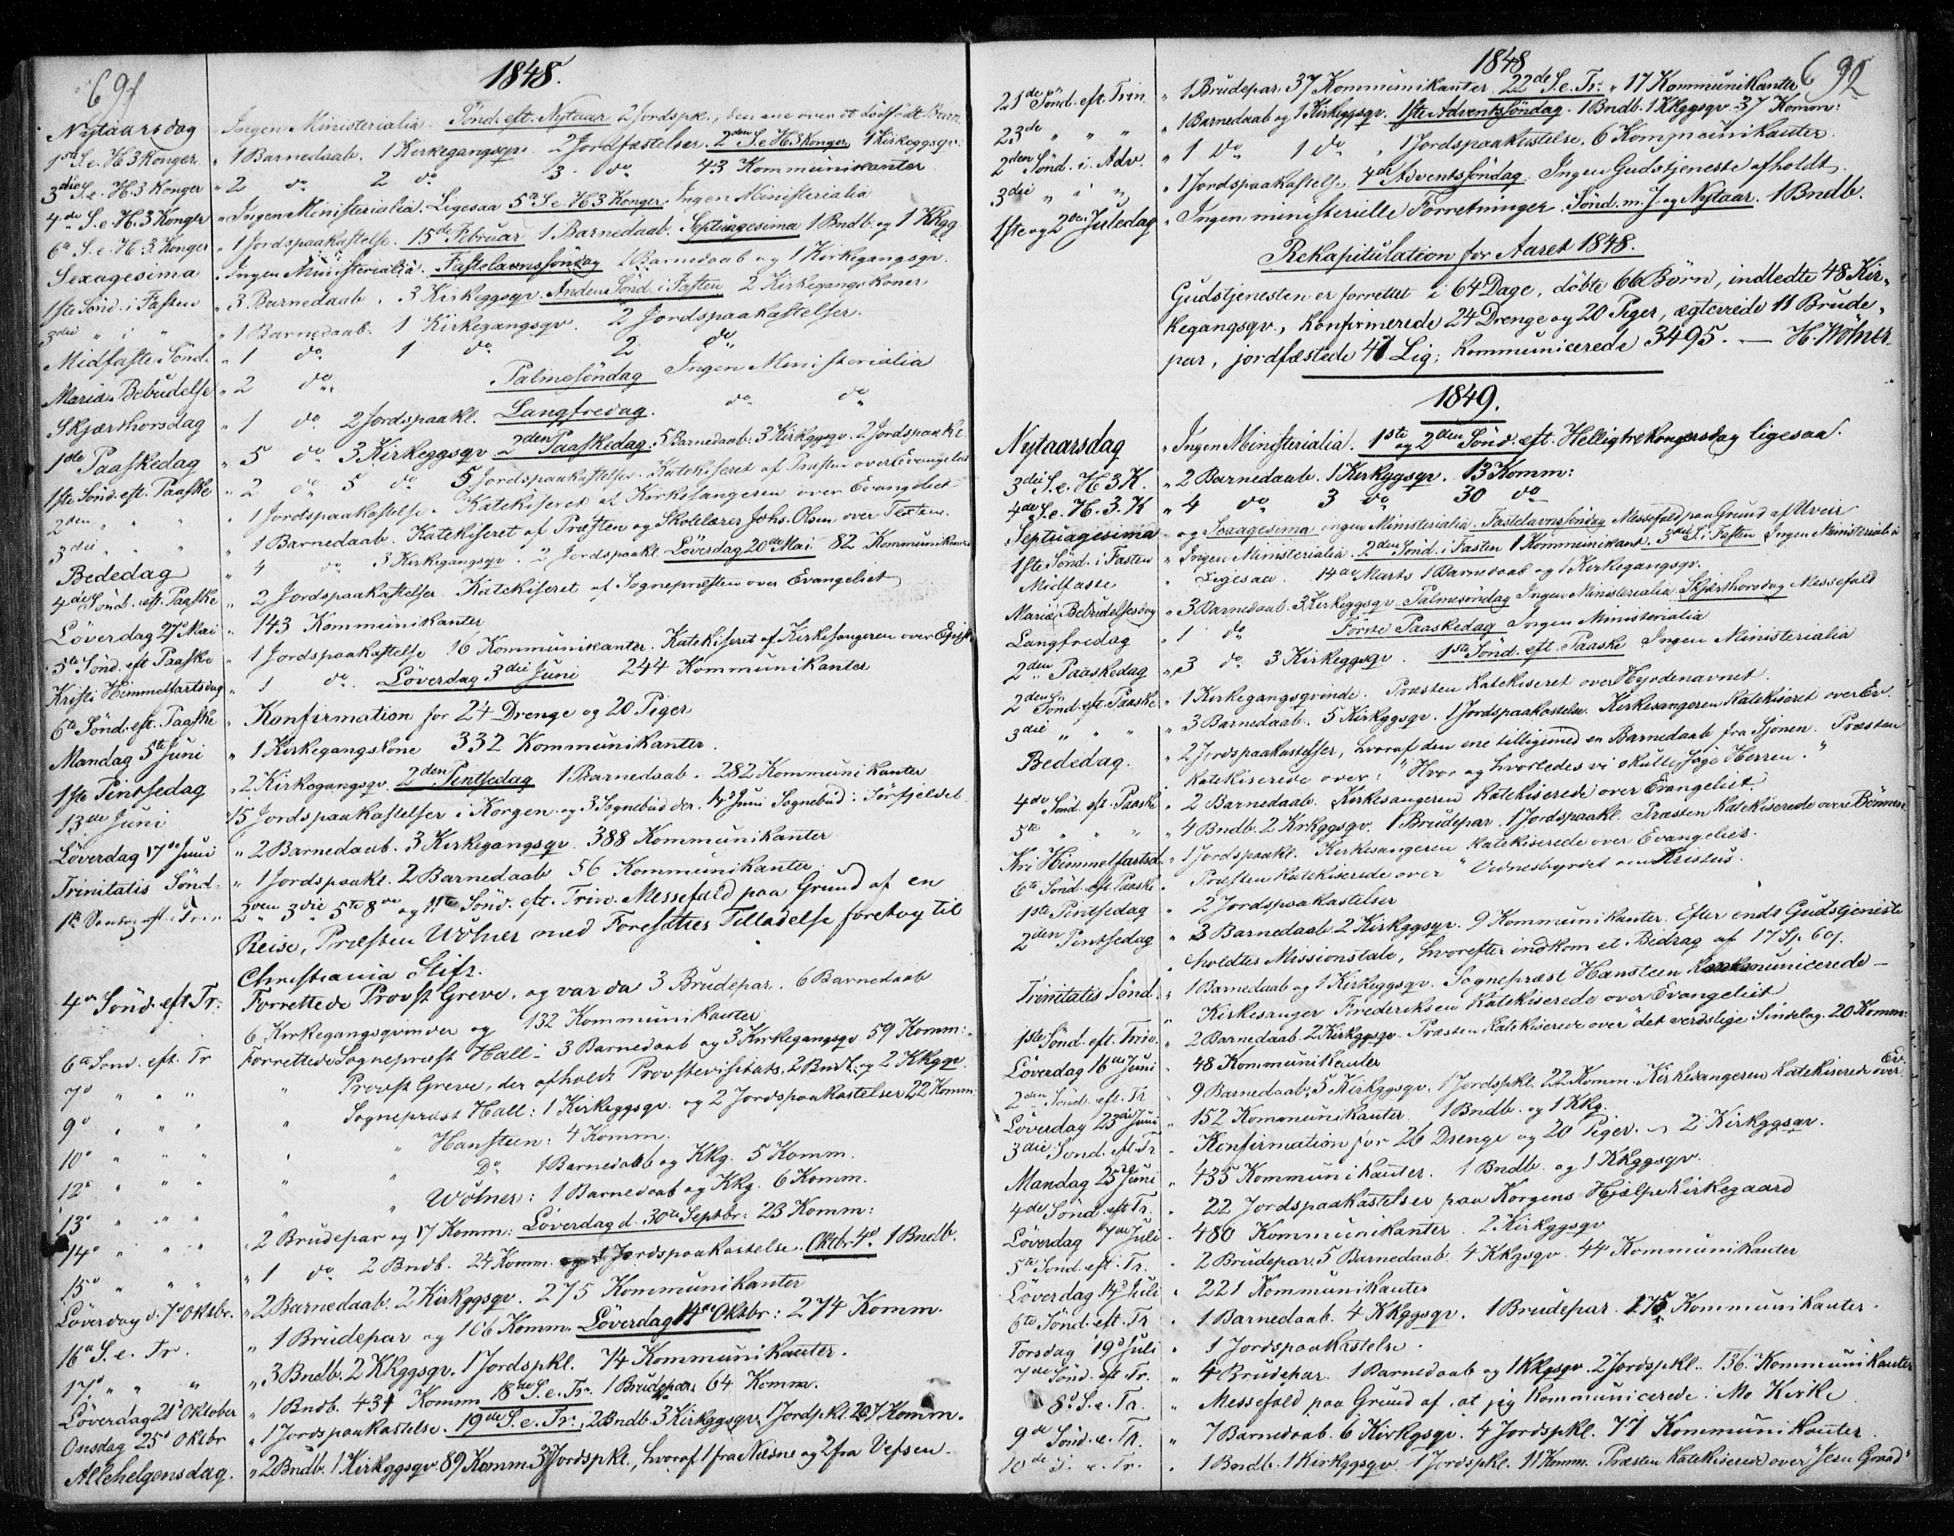 691
1848.
Nytaarsdag Ingen Ministerialia. Sönd. eft. Nytaar 2 Jordspkl., den ene over et dödfödt Barn
1ste S. e. H. 3 Konger " 1 Barnedaab. 1 Kirkegangsqv. 2 Jordfæstelser. 2den S. e. H. 3 Konger 1 Kirkeggsqv.
3die S. e. H. 3 Konger " 2 do 2 do 3 do 43 Kommunikanter
4de S. e. H. 3 Konger " Ingen Ministerialia. Ligesaa 5te S. e. H. 3 Konger. Ingen Ministerialia
6te S. e. H. 3. Konger " 1 Jordspaakastelse. 15de Februar 1 Barnedaab. Septuagesima 1 Bndb. og 1 KKgg
Sexagesima " Ingen Ministerialia. Fastelavnssöndag 1 Barnedaab og 1 Kirkegangsqv.
1ste Sönd. i Fasten " 3 Barnedaab. 3 Kirkeggsqv. Anden Sönd. i Fasten 2 Kirkegangskoner
3die " i " " 1 Barnedaab. 1 Kirkegangsqv. 2 Jordspaakastelser.
Midfaste Sönd. " 1 do 1 do 2 do
Mariæ Bebudelse " 2 do Palmesöndag Ingen Ministerialia
Skjærthorsdag " 1 do 2 Jordspaakl. Langfredag. do do
1ste Paaskedag " 5 do 3 Kirkeggsqv 2den Paaskedag. 5 Barnedaab. 3 Kirkggsqv. 2 Jordspaakl.
1ste Sönd. eft. Paaske " 2 do 5 do 5 Jordspaakastelser. Katekiseret af Præsten over Evangeliet
2den " " " 1 Jordspaakastelse. Katekiseret af Kirkesangeren over Evangeliet
3die " " " 1 Barnedaab. Katekiseret af Præsten og Skolelærer Johs. Olsen over Texten.
Bededag " 4 do 3 Kirkegangsqv. 2 Jordspaakl. Löverdag 20de Mai 82 Kommunikanter
4de Sönd. eft. Paaske " 2 Jordspaakastelser Katekiseret af Sognepræsten over Evangeliet
Löverdag 27de Mai " 143 Kommunikanter
5te Sönd. eft. Paaske " 1 Jordspaakastelse 16 Kommunikanter. Katekiseret af Kirkesangeren over Epist.
Kristi Himmelfartsdag " 1 do. Löverdag 3die Juni 244 Kommunikanter
6te Sönd. eft. Paaske " Konfirmation for 24 Drenge og 20 Piger
Mandag 5te Juni " 1 Kirkegangskone 332 Kommunikanter.
1ste Pintsedag " 2 Kirkegangsqv. 2den Pintsedag 1 Barnedaab. 282 Kommunikanter
13de Juni 15 Jordspaakastelser i Korgen og 3 Sognebud der. 14de Juni Sognebud i Sörfjeldet
Löverdag 17de Juni " 2 Barnedaab. 3 Kirkegangsqv. 388 Kommunikanter.
Trinitatis Sönd. " 1 Jordspaakl. 2 Barnedaab 56 Kommunikanter
1ste Söndag eft. Tr. " 2den 3die 5te 8de og 11te Sönd. eft. Trin. Messefald paa Grund af en
Reise, Præsten Wölner med Foresattes Tilladelse foretog til
Christiania Stift.
4de Sönd. eft. Tr: Forrettede Provst Greve, og var da 3 Brudepar. 6 Barnedaab
6 Kirkegangsqvinder og 132 Kommunikanter
6te Sönd. eft. Tr Forrettede Sognepræst Hall: 3 Barnedaab og 3 Kirkegangsqv 59 Komm:
7de " " " " Provst Greve, der afholdt Provstevisitats. 2 Bndb. og 2 KKgqv
9de " " " " Sognepræst Hall: 1 Kirkeggsqv. og 2 Jordspaakastelser 22 Komm.
10de " " " " " Hansteen: 4 Komm.
12te " " " " " Do 1 Barnedaab og KKg. 5 Komm.
13de " " " " " Wölner: 1 Barnedaab og KKg. 6 Komm.
14de " " " 2 Brudepar og 17 Komm: Löverdag d. 30te Septbr: 23 Komm:
15de " " " " 1 do 2 Bndb. 24 Komm. 1 Jordspaakastelse. Oktbr. 4de 1 Bndb.
Löverdag d. 7de Oktbr. " 2 Barnedaab. 2 Kirkggsqv. 275 Kommunikanter
16de S. e. Tr. " 1 Brudepar og 106 Komm. Löverdag 14de Oktbr: 274 Komm.
17de " " " " 3 Bndb. 2 KKggsqv. 1 Jordspkl. 74 Kommunikanter.
Löverdag 21de Oktober " 1 Bndb. 431 Komm 18de S. e. Tr. 1 Brudepar 64 Komm.
Onsdag 25de Oktbr " 1 Jordspaakastelse. 19de S. e. Tr: 2 Bndb. 3 Kirkggsqv. 1 Jordspkl. 207 Komm.
Allehelgensdag. " 2 Bndb. 1 Kirkggsqv. 89 Komm. 3 Jordspkl., hvoraf 1 fra Næsne og 2 fra Vefsen.
692
1848
21de Sönd. eft. Trin " 1 Brudepar. 37 Kommunikanter. 22de S. e. Tr: " 17 Kommunikanter
23de " " " " 1 Barnedaab og 1 Kirkeggsqv. 1ste Adventssöndag. 1 Bndb. 1 KKggsqv. 37 Komm:
2den Sönd. i. Adv. " 1 do 1 do, 1 Jordspaakastelse, 6 Kommunikanter.
3die " i " " 1 Jordspaakastelse. 4de Adventssöndag. Ingen Gudstjeneste afholdt
1ste og 2den Juledag " Ingen ministerielle Forretninger. Sönd. m. J. og Nytaar. 1 Bndb.
Rekapitulation for Aaret 1848.
Gudstjenesten er forrettet i 64 Dage, döbte 66 Börn, indledte 48 Kir-
kegangsqv., konfirmerede 24 Drenge og 20 Piger, ægteviede 11 Brude-
par, jordfæstede 47 Lig; kommunicerede 3495. — H. Wölner
1849.
Nytaarsdag " Ingen Ministerialia. 1ste og 2den Sönd. eft. Hellig tre Kongersdag ligesaa
3die S. e. H. 3 K. " 2 Barnedaab. 1 Kirkggsqv. 13 Komm:
4de S. e. H. 3. K " 4 do 3 do 30 do
Septuagesima og Sexagesima ingen Ministerialia. Fastelavnssöndag Messefald paa Grund af Uveir
1ste Sönd. i Fasten " Ingen Ministerialia. 2den Sönd. i Fasten 1 Kommunikant. 3die S. i Fasten Ingen Ministerialia
Midfaste " Ligesaa. 14de Marts 1 Barnedaab og 1 Kirkegangsqv.
Mariæ Bebudelsesdag " 3 Barnedaab. 3 Kirkeggsqv. Palmesöndag Ingen Ministerialia Skjærthorsdag Messefald
Langfredag " 1 do Förste Paaskedag Ingen Ministerialia
2den Paaskedag " 3 do 3 Kirkeggsqv. 1ste Sönd. eft. Paaske Ingen Ministerialia
2den Sönd. eft. Paaske " 1 Kirkegangsqvinde. Præsten katekiseret over Hyrdenavnet.
3die " " " " 3 Barnedaab. 5 Kirkggsqv. 1 Jordspaakastelse. Kirkesangeren katekiseret over Ev.
Bededag. " 2 Jordspaakastelser, hvoraf den ene tilligemed en Barnedaab fra Sjonen. Præsten
katekiserede over: "Hvor og hvorledes vi skulle söge Herren."
4de Sönd. eft. Paaske " 2 Barnedaab. Kirkesangeren katekiserede over Evangeliet.
5te " " " " 4 Bndb. 2 Kirkggsqv. 1 Brudepar. 1 Jordspaakl. Præsten katekiserede over Bönnen
Kri Himmelfartsd. " 1 Jordspaakl. Kirkesangeren katekiserede over Evangeliet.
6te Sönd. eft. Paaske " Præsten katekiserede over "Vidnesbyrdet om Kristus.
1ste Pintsedag " 2 Jordspaakastelser
2den Pintsedag " 3 Barnedaab 2 Kirkggsqv. 9 Kommunikanter. Efter endt Gudstjeneste
holdtes Missionstale, hvorefter indkom et Bidrag af 17 Sp. 60 s.
Trinitatis Sönd. " 1 Barnedaab og 1 Kirkggsqv. Sognepræst Hansteen kommunicerede —
Kirkesanger Frederiksen katekiserede over Evangeliet
1ste Sönd. eft. Trin. " 2 Barnedaab 2 Kirkggsqv. Præsten katekiserede over det verdslige Sindelag. 20 Komm:
Löverdag 16de Juni " 48 Kommunikanter
2den Sönd. eft. Tr " 9 Barnedaab, 5 Kirkggsqv. 1 Jordspkl. 22 Komm. Kirkesangeren katekiserede over Ev.
Löverdag 23de Juni " 152 Kommunikanter 1 Bndb. og 1 KKg.
3die Sönd. eft. Tr " Konfirmation for 26 Drenge og 20 Piger. 2 Kirkggsqv.
Mandag 25de Juni " 435 Kommunikanter. 1 Bndb. og 1 KKggsqv.
4de Sönd. eft Tr. " 22 Jordspaakastelser paa Korgens Hjælpekirkegaard
Löverdag 7de Juli " 480 Kommunikanter. 2 Kirkggsqv
5te Sönd. eft. Tr. " 2 Brudepar. 5 Barnedaab. 4 KKgsqv. 44 Kommunikanter
Löverdag 14de Juli " 221 Kommunikanter
6te Sönd. eft. Tr " 1 Barnedaab. 4 KKggsqv. 1 Brudepar. 175 Kommunikanter.
Torsdag 19de Juli " 1 Jordspaakastelse.
7de Sönd. eft. Tr. " 4 Brudepar. 1 Barnedaab og 1 KKgsqv. 2 Jordspkl. 136. Kommunikanter
8de S. e. Tr. " Messefald paa Grund af, at jeg kommunicerede i Mo Kirke
9de Sönd. e. Tr. " 7 Barnedaab. 6 Kirkgsqv. 4 Jordspkl. 77 Kommunikanter.
10de S. e. Tr. " 1 Bndb. 1 Kirkggsqv. 1 Jordspkl. 11 Komm. Præsten katekiserede over "Jesu Graad"